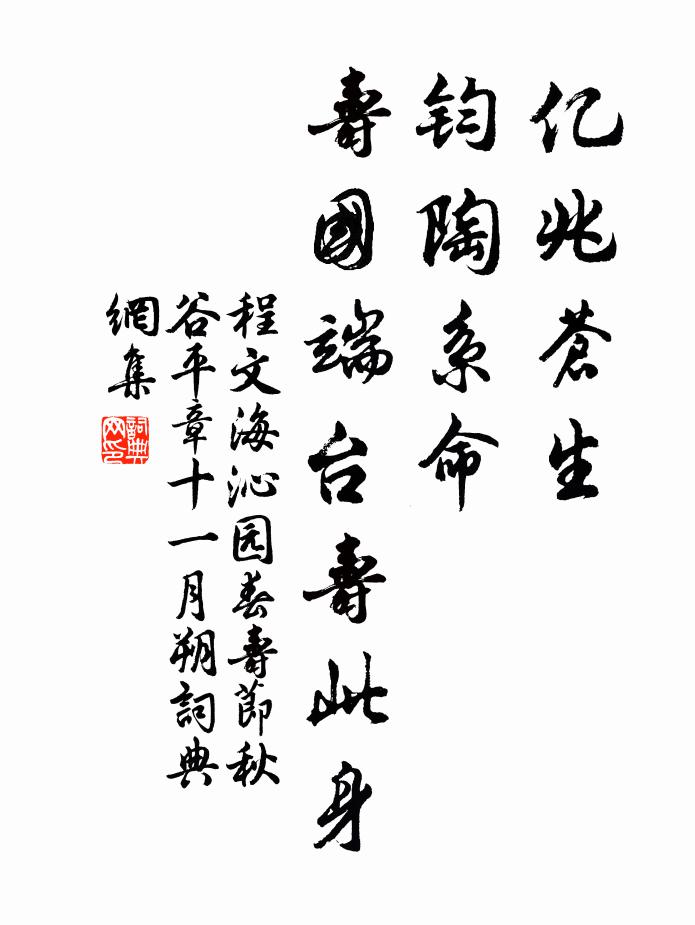 亿兆蒼生
钧陶系命
壽國端台壽此身
程文海沁园春壽節秋
谷平章十一月朔詞典
網集
詞典网印